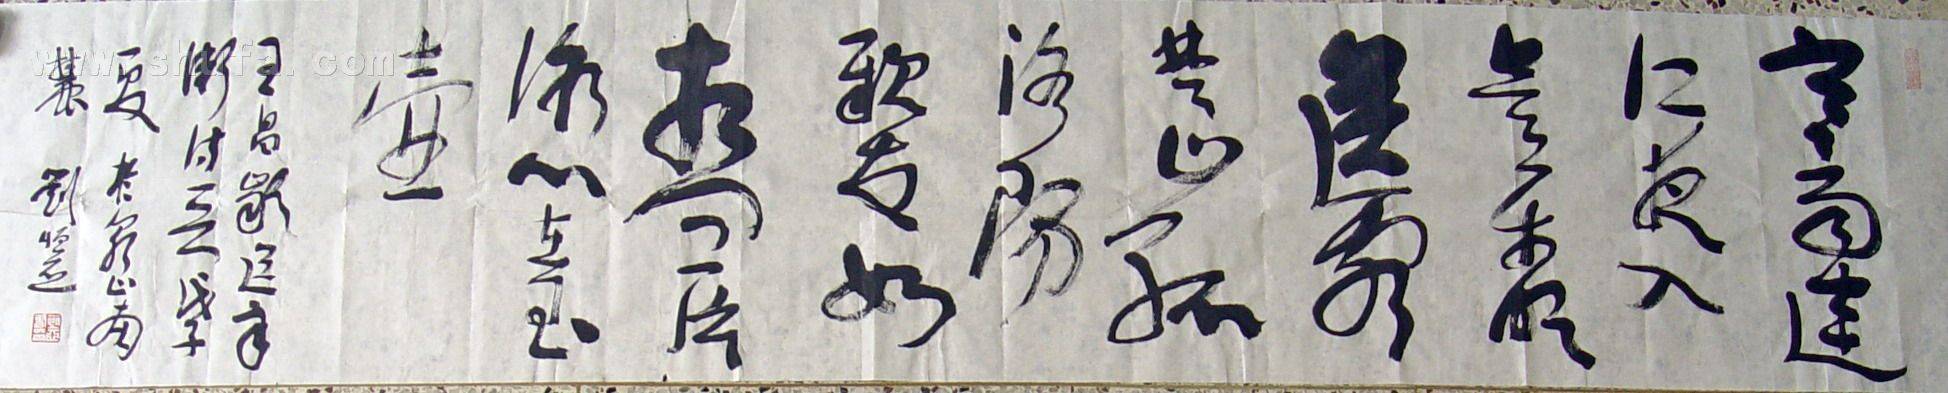 寒雨連
江夜入
吳平明
送客
楚山孤
洛陽
親友如
相問一片
冰心在玉
壺
王昌齡送辛
漸詩一首
夏山南
麓 劉
www.shufa.com